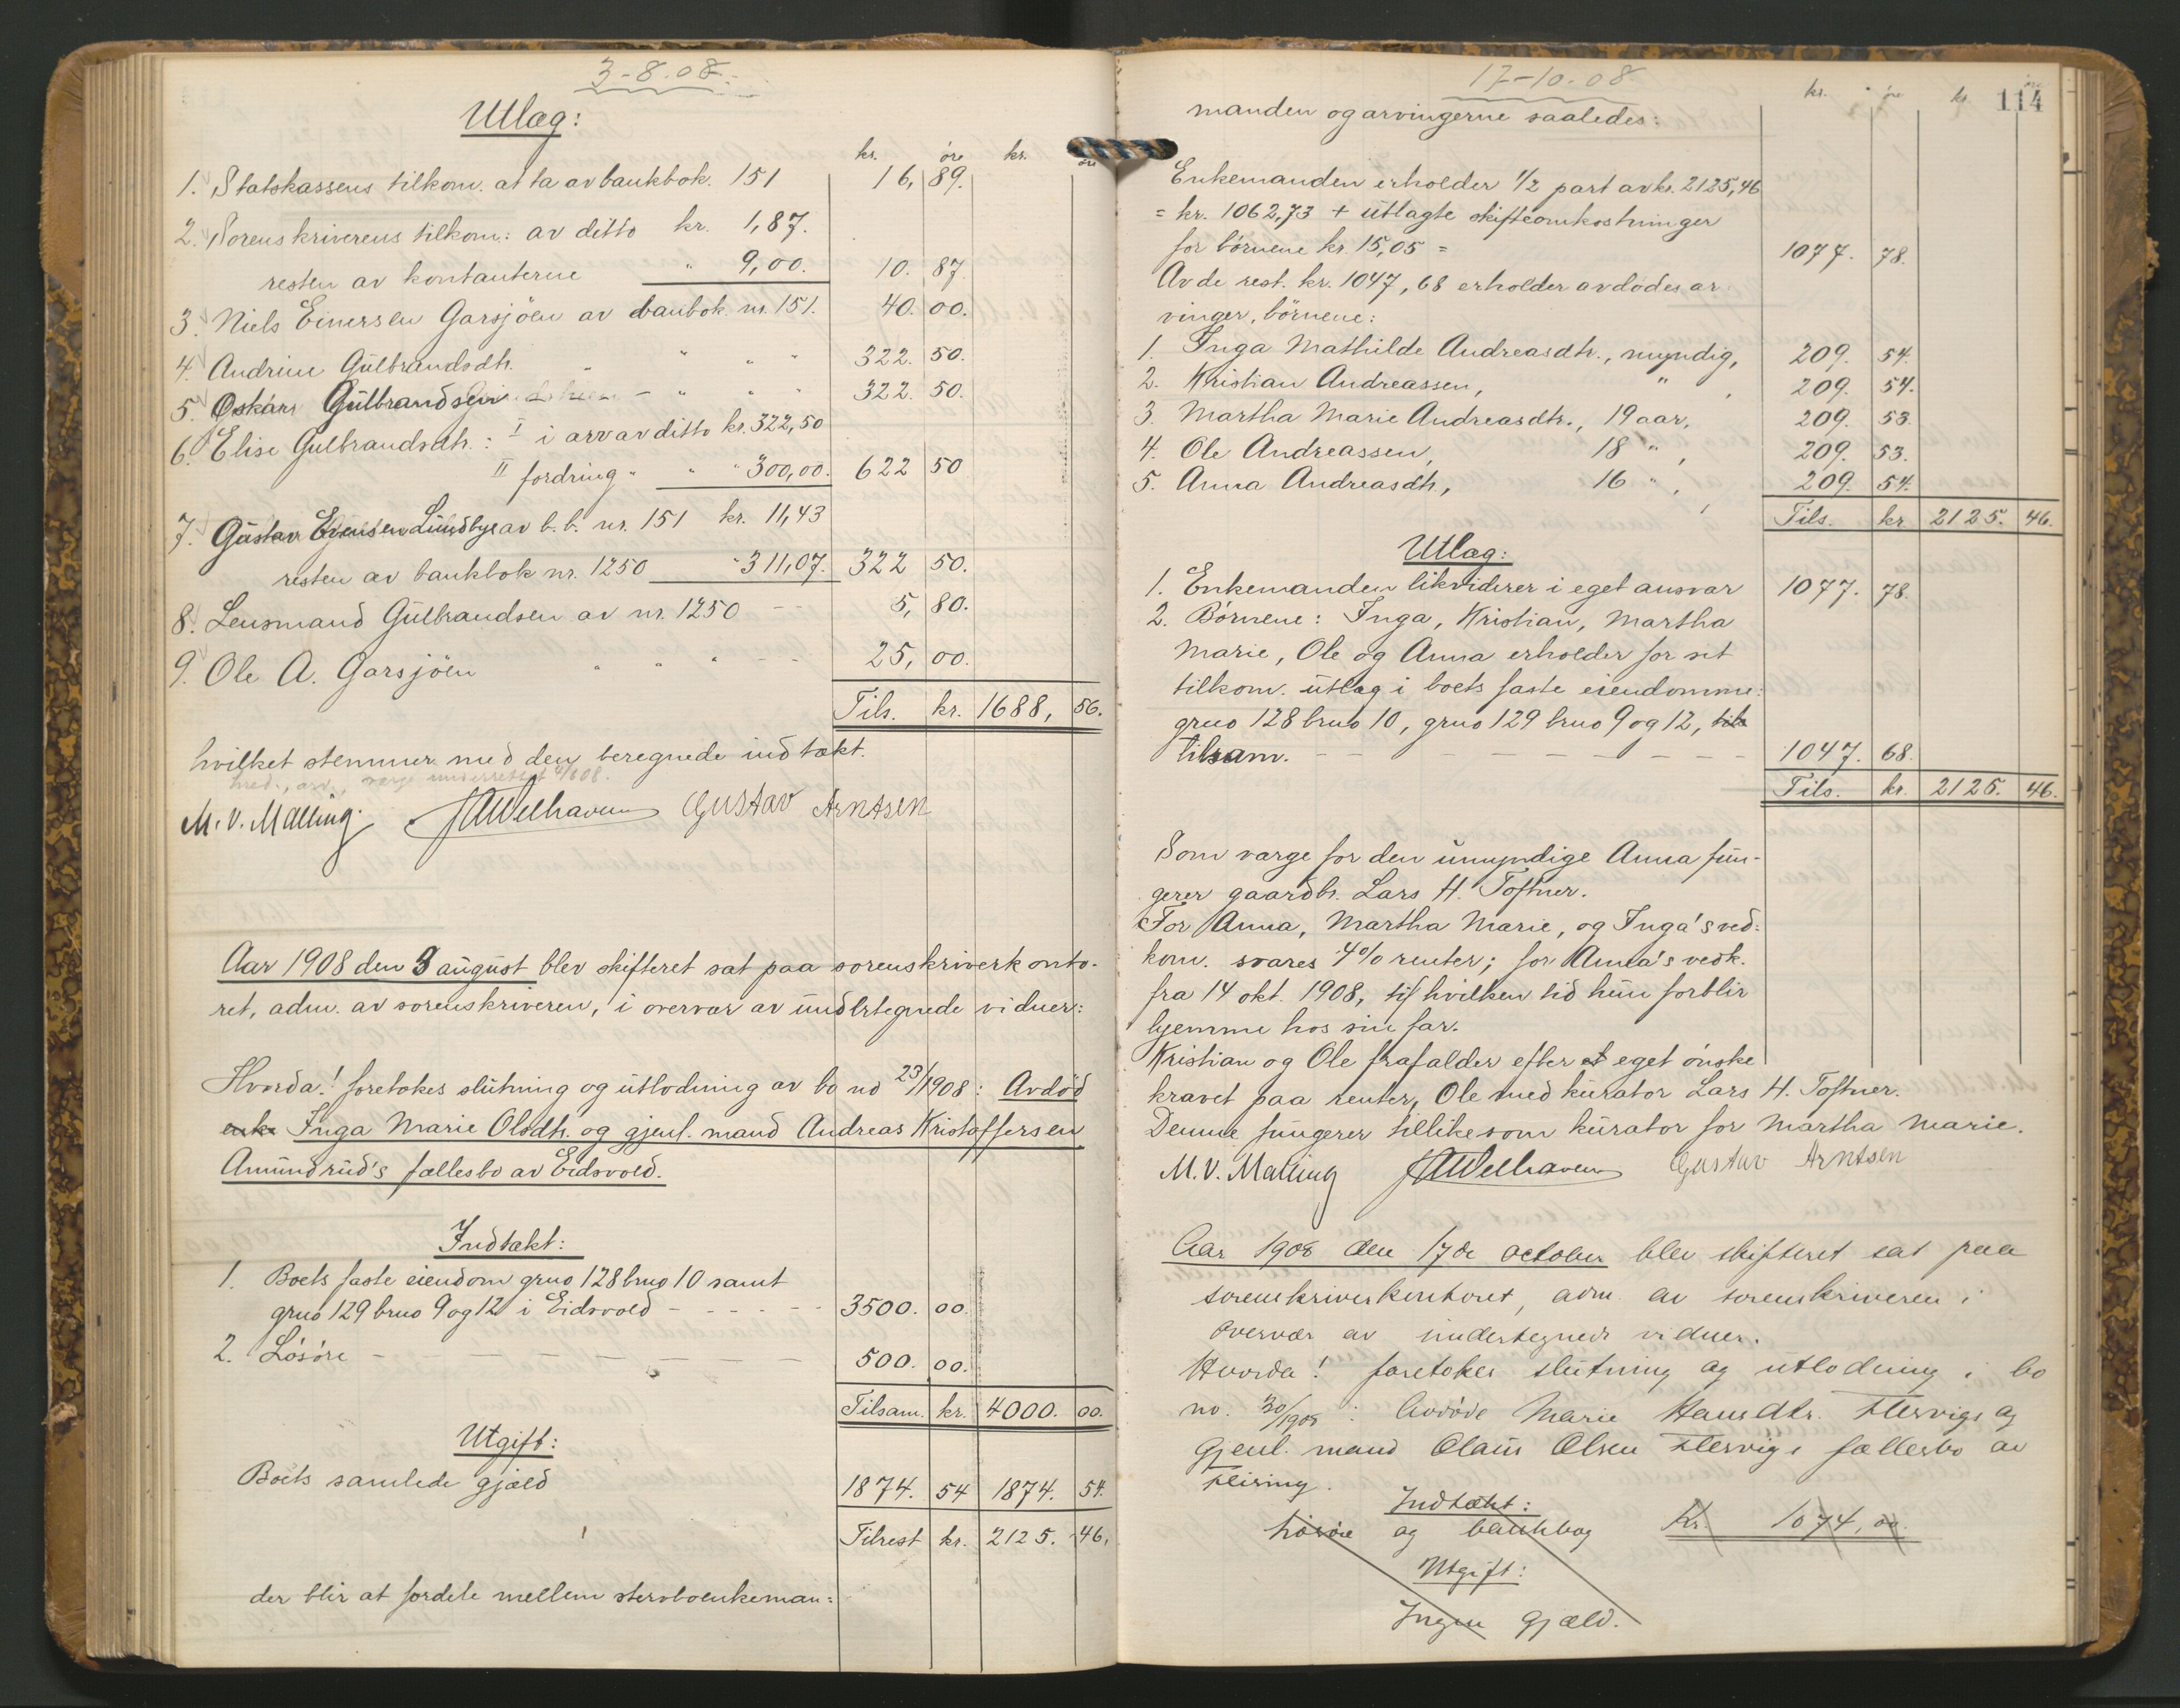 3-8.08.
Utlæg:
kr. øre kr. øre
1. Statskassens tilkom. at ta av bankbok. 151 16, 89.
2. Sorenskriverens tilkom: av ditto kr. 1,87.
resten av kontanterne " 9,00. 10. 87.
3. Niels Einersen Garsjöen av banbok nr. 151. 40. 00.
4. Andrine Gulbrandsdtr. " " " " 322. 50.
5. Oskar Gulbrandsen " " " 322. 50.
6. Elise Gulbrandsdtr.: I i arv av ditto kr. 322,50
II fordring " " " 300,00. 622 50
7. Gustav Evensen Lundbye av b.b. nr. 151 kr. 11,43
resten av bankbok nr. 1250 " 311,07. 322 50.
8. Lensmand Gulbrandsen av nr. 1250 - - 5, 80.
9. Ole A. Garsjöen " " " - - 25, 00.
Tils. kr. 1688, 56.
hvilket stemmer med den beregnede indtækt.
M. V. Malling. Welhaven Gustav Arntsen
Aar 1908 den 3 august blev skifteret sat paa sorenskriverkonto-
ret, adm. av sorenskriveren, i overvær av undertegnede vidner:
Hvorda! foretokes slutning og utlodning av bo no 23/1908: Avdöd
enke Inga Marie Olsdtr. og gjenl. mand Andreas Kristoffersen
Amundrud's fællesbo av Eidsvold.
Indtækt:
1. Boets faste eiendom gno 128 bno 10 samt
gno 129 bno 9 og 12 i Eidsvold - - - - - 3500. 00.
2. Lösöre - - - - - - - 500. 00.
Tilsam. kr. 4000. 00.
Utgift:
Boets samlede gjæld 1874. 54 1874. 54.
Tilrest kr. 2125. 46.
der blir at fordele mellem stervboenkeman=
17-10-08
kr. øre kr. øre 114
manden og arvingerne saaledes:
Enkemanden erholder 1/2 part av kr. 2125,46
= kr. 1062,73 + utlagte skifteomkostninger
for börnene kr. 15,05 = 1077. 78.
Av de rest. kr. 1047,68 erholder avdödes ar-
vinger, börnene:
1. Inga Mathilde Andreasdtr., myndig, 209. 54.
2. Kristian Andreassen, " , 209. 54.
3. Martha Marie Andreasdtr., 19 aar, 209. 53.
4. Ole Andreassen, 18 " , 209. 53.
5. Anna Andreasdtr, 16 " , 209. 54.
Tils. kr 2125. 46.
Utlæg:
1. Enkemanden likviderer i eget ansvar 1077. 78.
2. Börnene: Inga, Kristian, Martha
Marie, Ole og Anna erholder for sit
tilkom. utlæg i boets faste eiendomme:
gno 128 bno 10, gno 129 bno 9 og 12, tils
tilsam. - - - - - - - 1047. 68.
Tils. kr. 2125. 46.
Som værge for den umyndige Anna fun-
gerer gaardbr. Lars H. Toftner.
For Anna, Martha Marie, og Inga's ved-
kom. svares 4% renter; for Anna's vedk.
fra 14 okt. 1908, til hvilken tid hun forblir
hjemme hos sin far.
Kristian og Ole frafalder efter et eget önske
kravet paa renter, Ole med kurator Lars H. Toftner.
Denne fungerer tillike som kurator for Martha Marie.
M. V. Malling Welhaven Gustav Arntsen
Aar 1908 den 17de october blev skifteret sat paa
sorenskriverkontoret, adm. av sorenskriveren i
overvær av undertegnede vidner.
Hvorda! foretokes slutning og utlodning i bo
no. 30/1908: Avdöde Marie Hansdtr. Hervigs og
gjenl. mand Olaus Olsen Hervigs fællesbo av
Feiring.
Indtækt:
Lösöre og bankbog Kr. 1074,00.
Utgift:
Ingen gjæld.